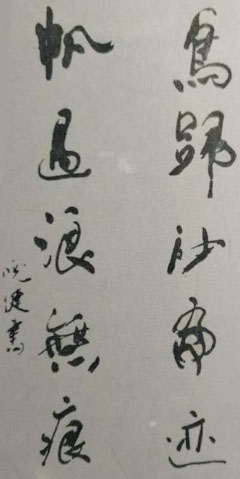 鳥歸沙有迹
帆過浪無痕
健書